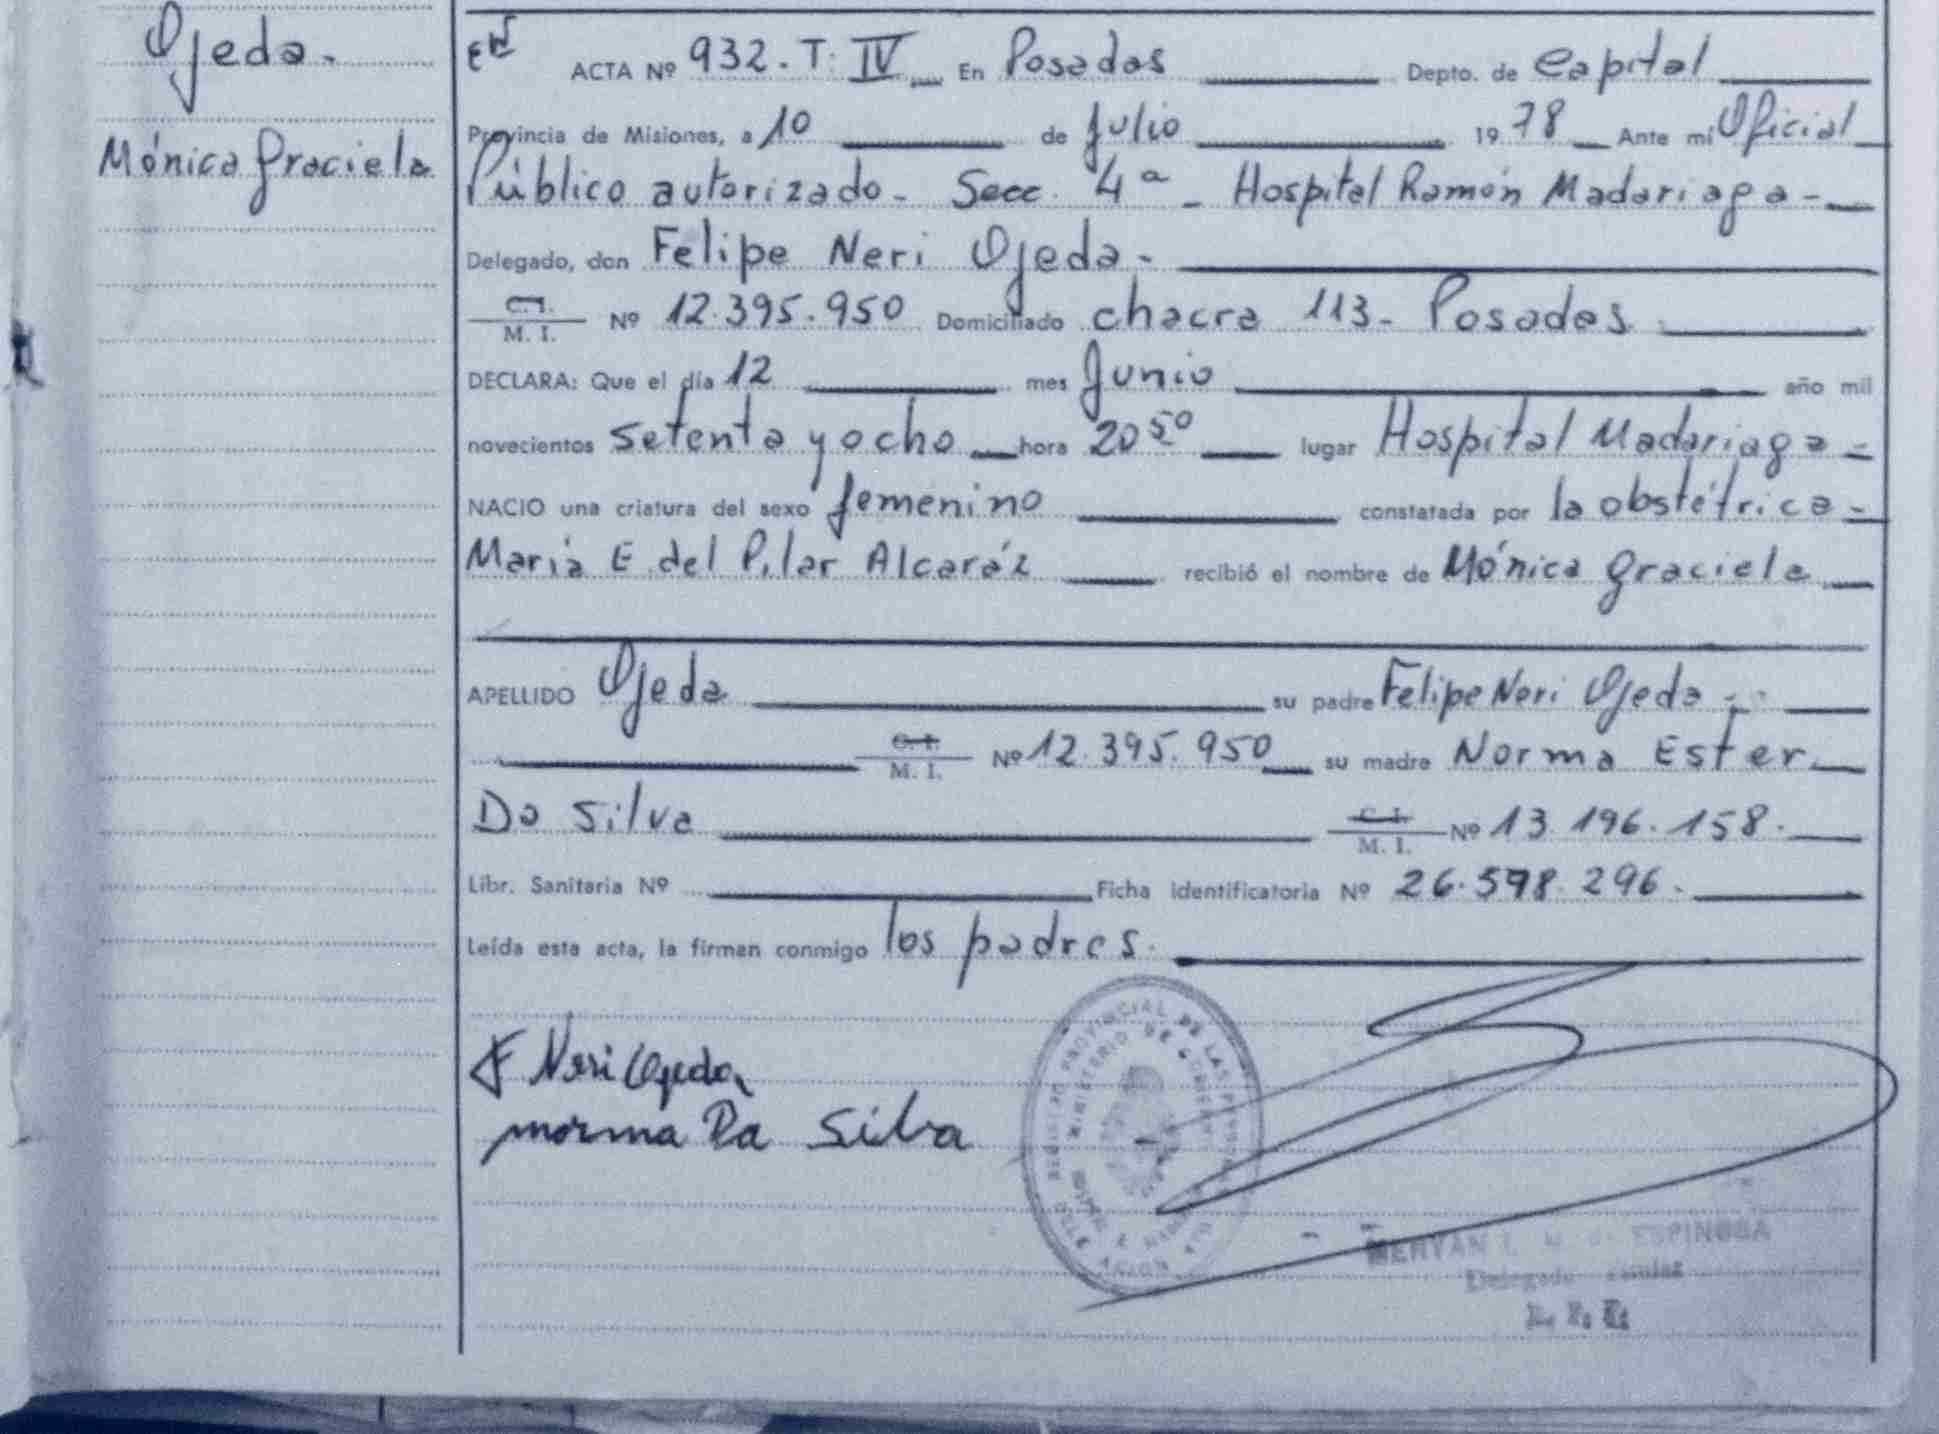 Ojeda.
Mónica Graciela
ACTA Nº 932. T: IV En Posadas Depto. de Capital
Provincia de Misiones, a 10 de Julio 1978 Ante mí Oficial
Público autorizado - Secc. 4ª - Hospital Ramón Madariaga -
Delegado, don Felipe Neri Ojeda -
C. I.
M. I. Nº 12.395.950 Domiciliado chacra 113 - Posadas
DECLARA: Que el día 12 mes Junio año mil
novecientos setenta y ocho hora 20 50 lugar Hospital Madariaga -
NACIO una criatura del sexo femenino constatada por la obstétrica -
María E del Pilar Alcaráz recibió el nombre de Mónica Graciela
APELLIDO Ojeda su padre Felipe Neri Ojeda -
C. I.
M. I. Nº 12.395.950 su madre Norma Ester
Da Silva C. I.
M. I. Nº 13.196.158.
Libr. Sanitaria Nº Ficha identificatoria Nº 26.598.296.
Leída esta acta, la firman conmigo los padres.
F Neri Ojeda
norma Da Silva
REGISTRO PROVINCIAL DE LAS PERSONAS
MINISTERIO DE GOBIERNO
ESPINOSA
Delegado